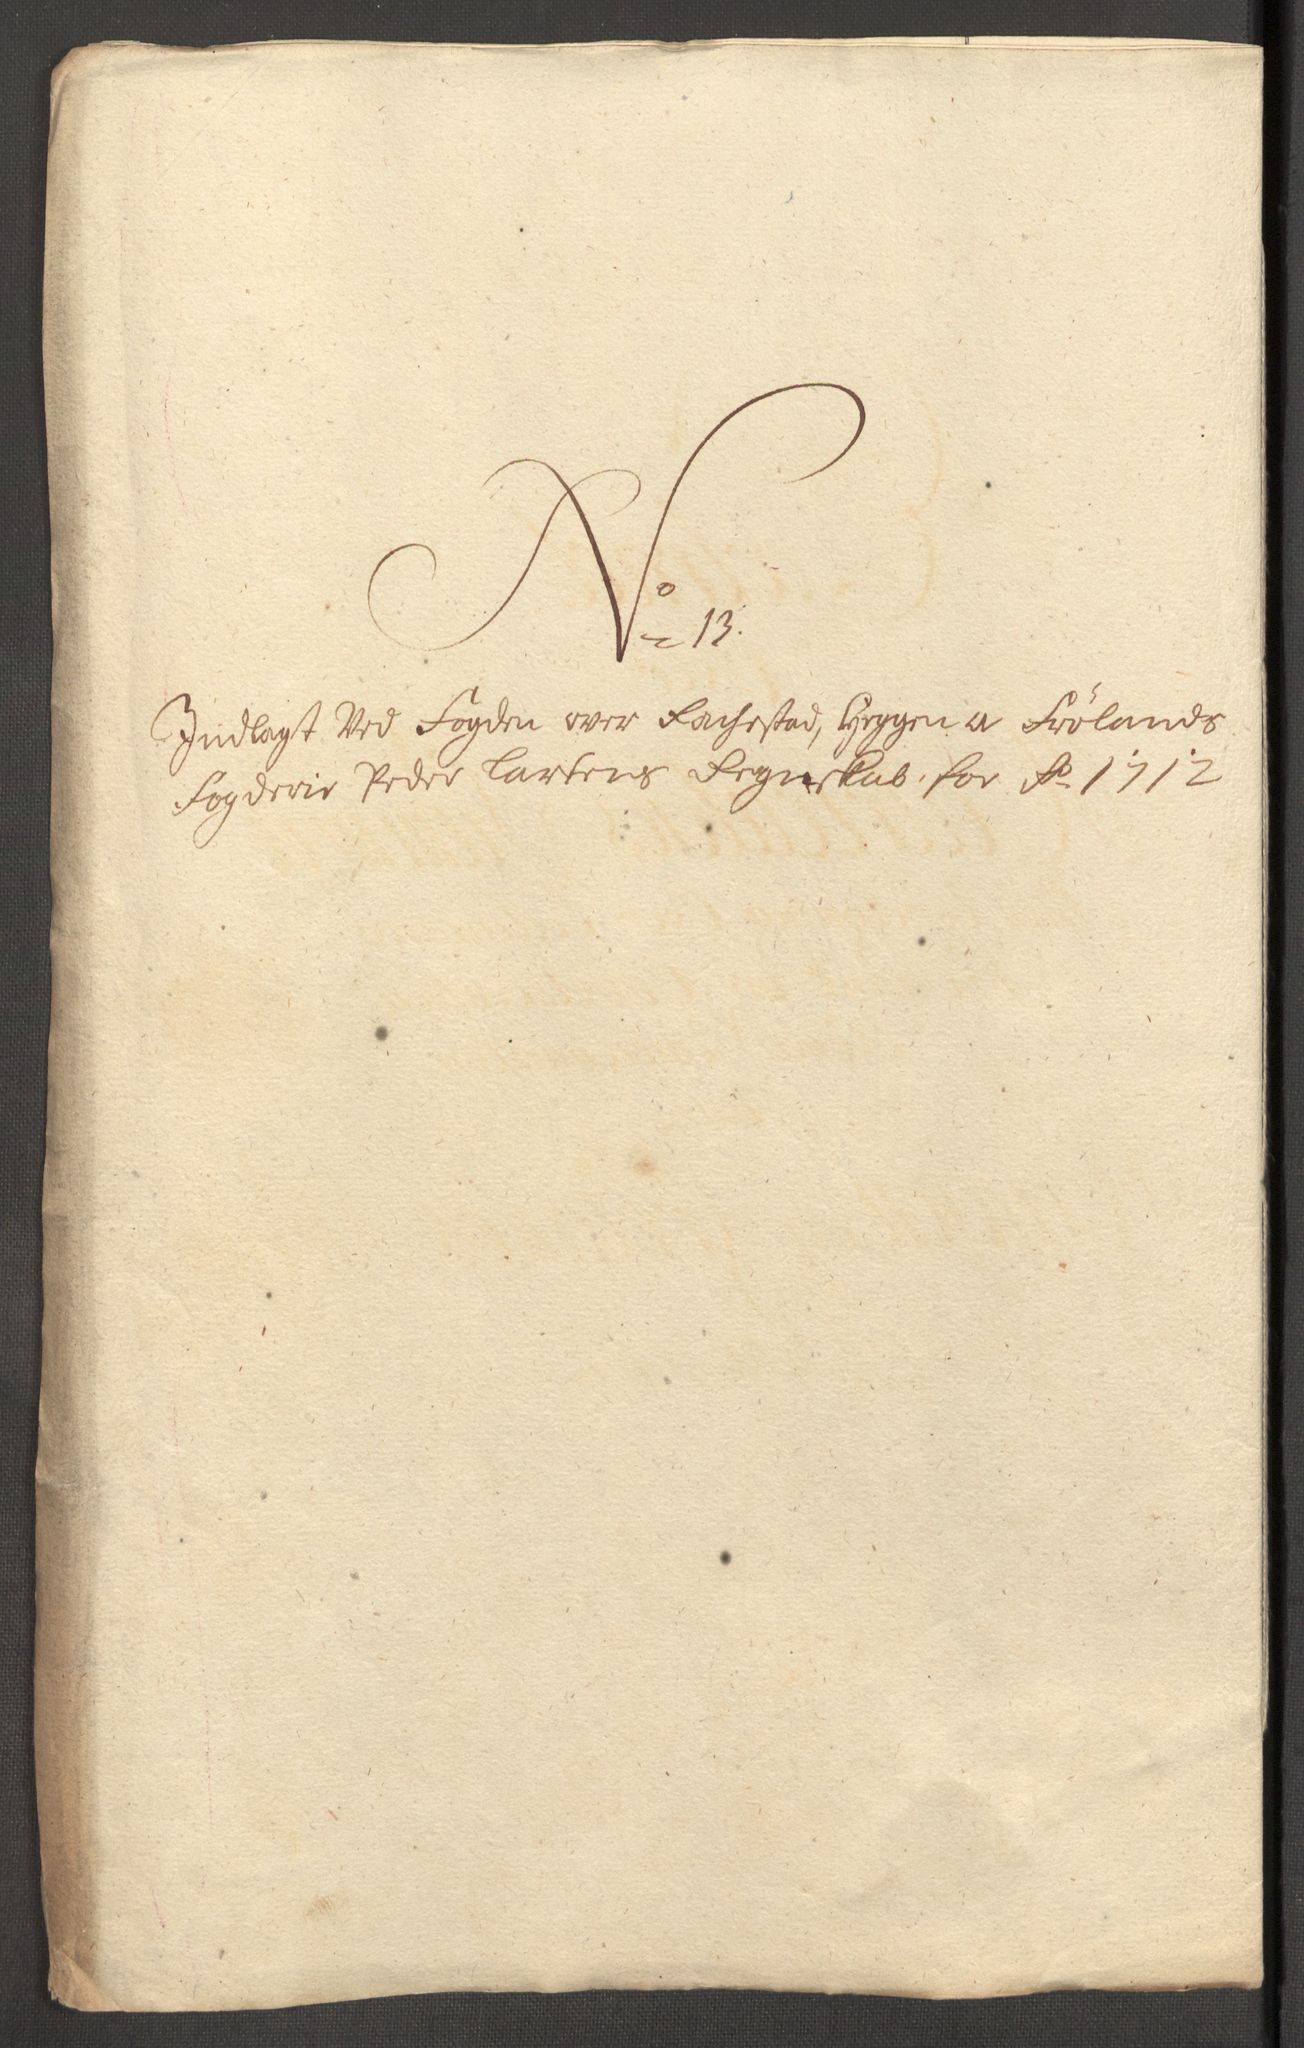 No 13.
Indlagt Ved Fogden over Rachestad, Heggen a Frölands
Fogderie Peder Larsens Regnskab for Ao 1712